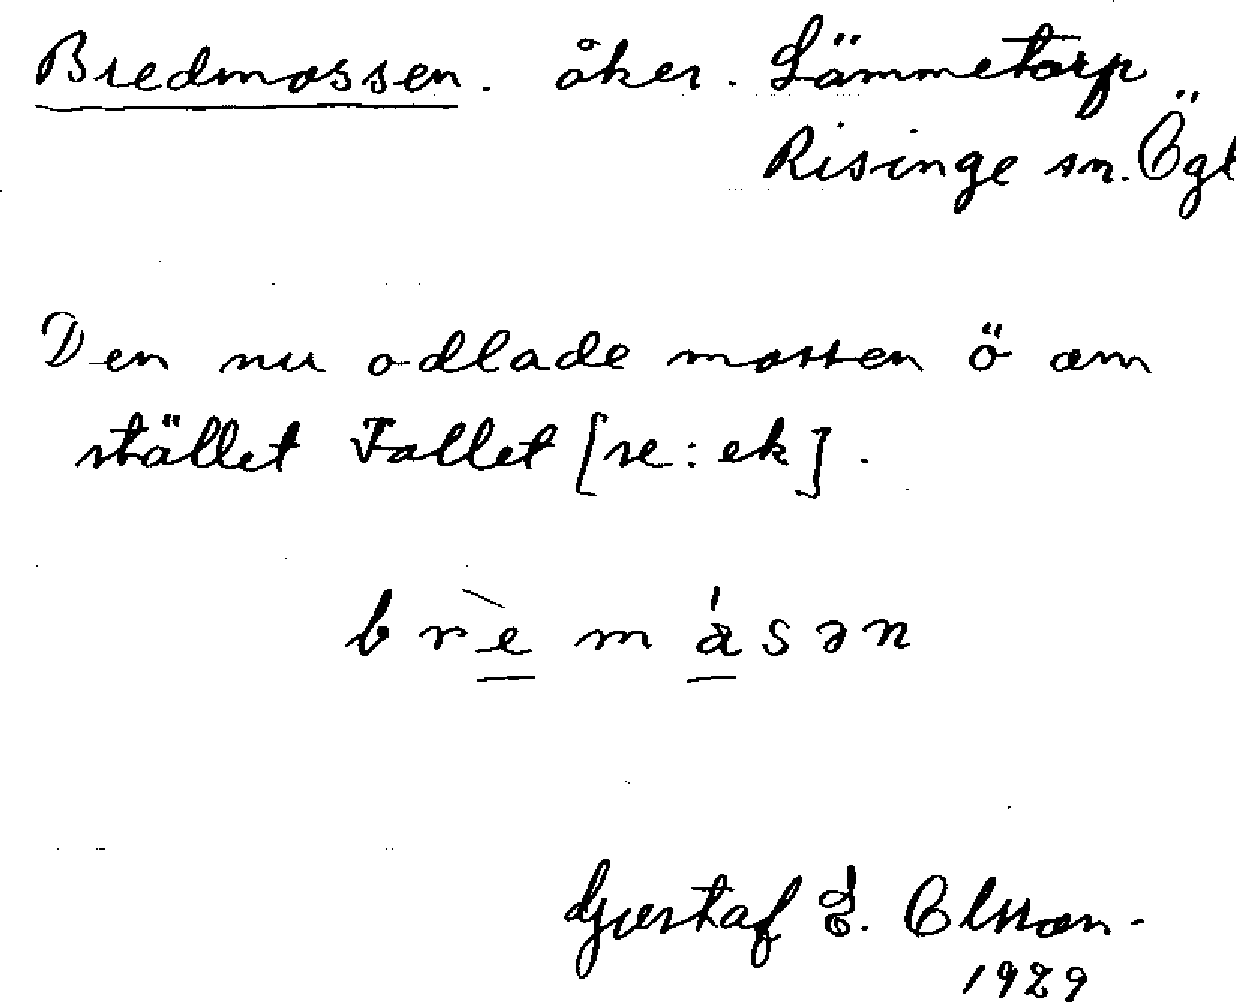 Bredmossen. åker. Lämmetorp
Risinge sn. Ögl
Den nu odlade mossen ö om
stället Fallet [se: ek].
brèmåsən
Gustaf E. Olsson.
1929